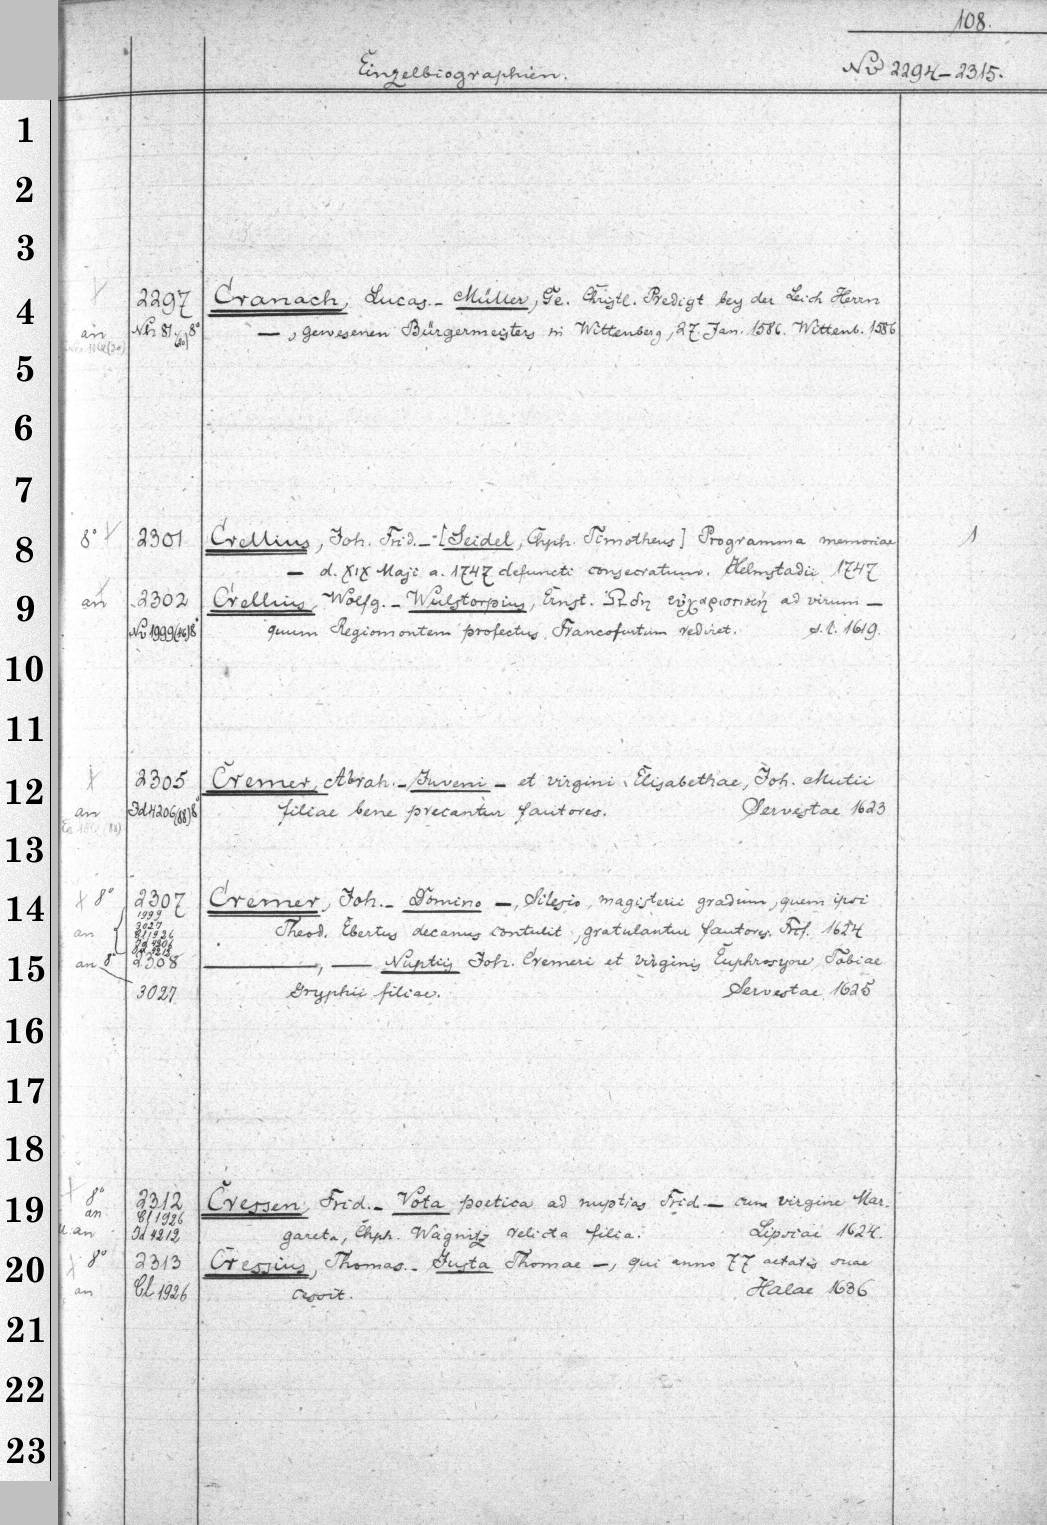 108.
Einzelbiographien. No 2294-2315.
1
2
3
4 2297 Cranach, Lucas. - Müller, Ge. Christl. Predigt bey der Leich Herrn
an No 81 (20) 8° —, gewesenen Bürgermeisters in Wittenberg, 27 Jan. 1586. Wittenb. 1586
5
6
7
8 8° 2301 Crellius, Joh. Frid. - [Seidel, Chph. Timotheus] Programma memoriae 1
— d. XIX Maji a. 1747 defuncti consecratum. Helmstadii 1747
9 an 2302 Crellius, Wolfg. - Wulstorpius, Ernst. Ωδη εὐχαριστικὴ ad virum —
No 1999 (46) 8° quum Regiomontem profectus Francofurtum rediret. s. l. 1619.
10
11
12 2305 Cremer, Abrah. - Juveni — et virgini Elisabethae, Joh. Mutii
an Id 4206 (88) 8° filiae bene precantur fautores. Servestae 1623
13
14 8° 2307 Cremer, Joh. - Domino —, Silesio, magisterii gradum, quem ipsi
1999
3027
an Theod. Ebertus decanus contulit, gratulantur fautores. Trf. 1624
15 an 8° 2308 —, — Nuptiis Joh. Cremeri et virginis Euphrosyne Tobiae
3027 Gryphii filiae. Servestae 1625
16
17
18
19 8° 2312 Cressen, Frid. - Vota poetica ad nuptias Frid. — cum virgine Mar.
an Cl 1926
u. an Id 4212 gareta, Chph. Wagnitz relicta filia. Lipsiae 1624.
20 8° 2313 Cressius, Thomas. - Justa Thomae —, qui anno 77 aetatis suae
an Cl 1926 Halae 1636
21
22
23